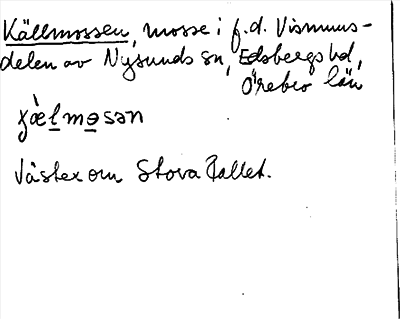 Källmossen, mosse i f.d. Vismums-
delen av Nysunds sn, Edsbergs hd,
Örebro län
Väster om Stora Fallet.